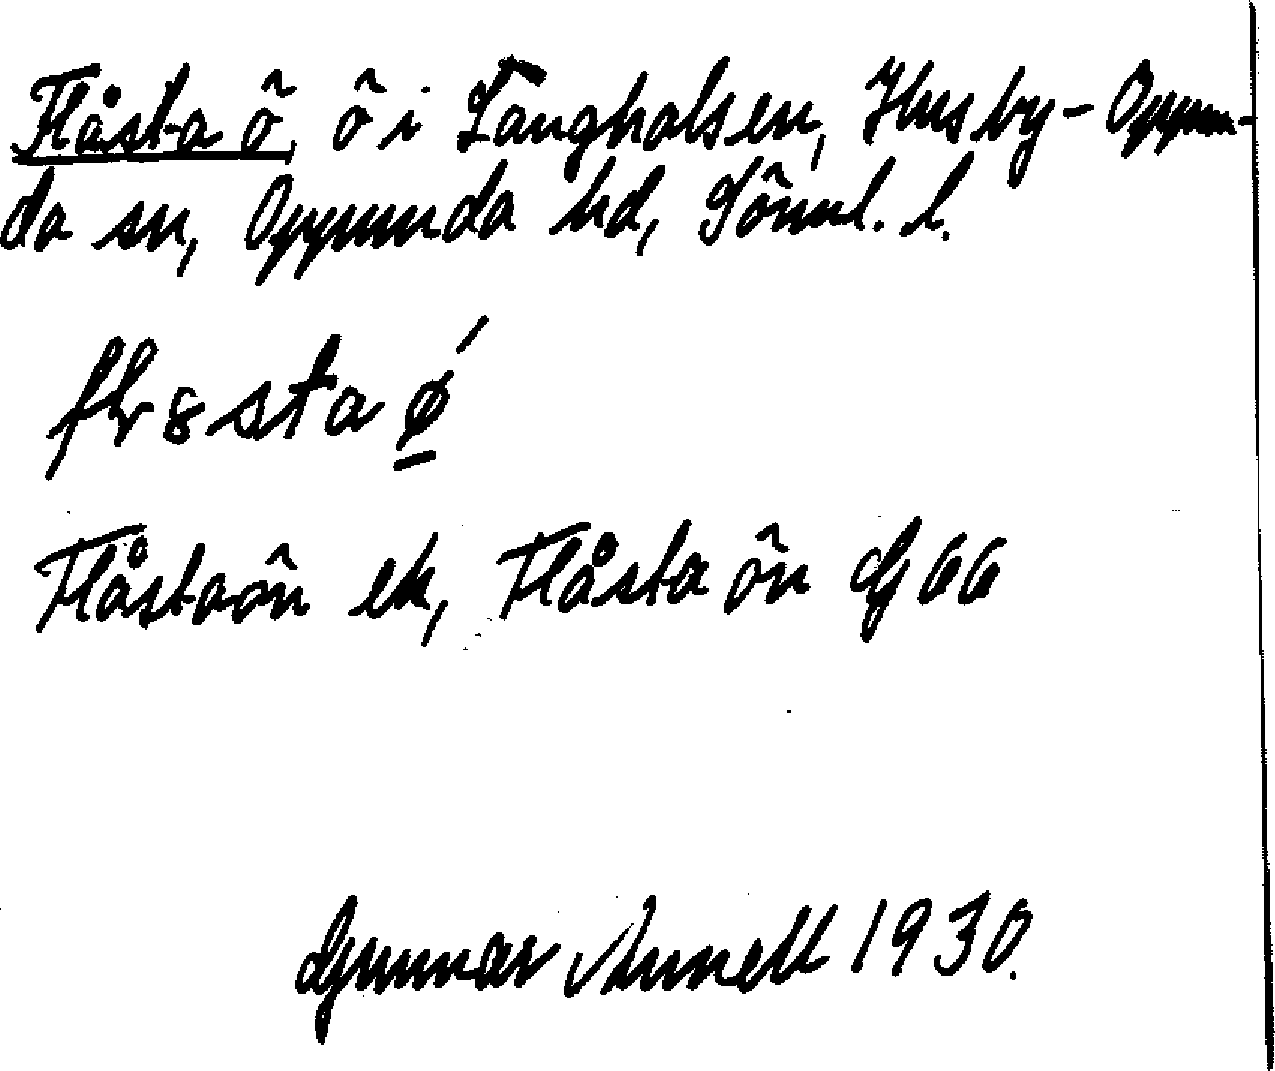 Flåsta ö, ö i Långhalsen, Husby-Oppun-
da sn, Oppunda hd, Söderml. l.
Flåstaön ek, Flåsta ön G 66
Gunnar Annell 1930.